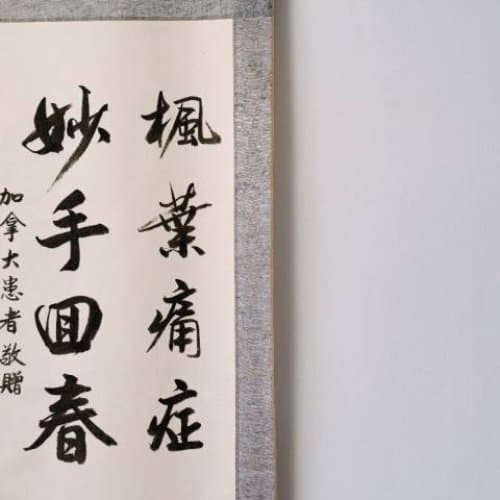 楓葉痛症
妙手回春
加拿大患者敬贈